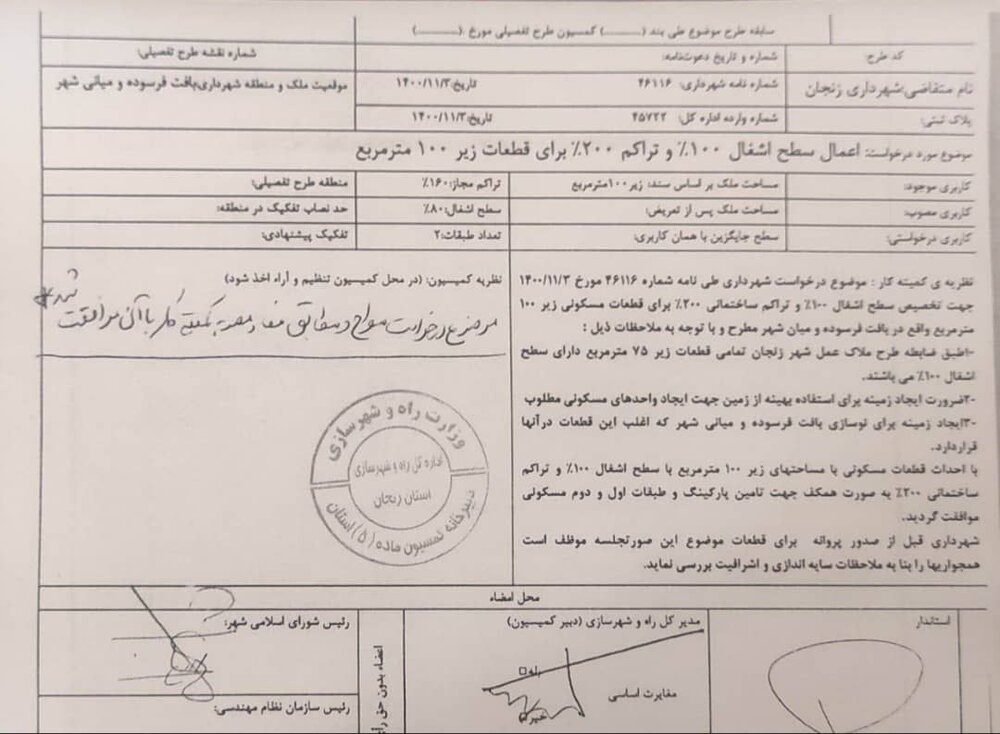 سابقه طرح موضوع طی بند (..........) کمسیون طرح تفصیلی مورخ (............)
کد طرح: شماره و تاریخ دعوتنامه: شماره نقشه طرح تفصیلی:
نام متقاضی:شهرداری زنجان شماره نامه شهرداری: ۴۶۱۱۶ تاریخ:۱۴۰۰/۱۱/۳ موقعیت ملک و منطقه شهرداری:بافت فرسوده و میانی شهر
پلاک ثبتی: شماره وارده اداره کل: ۴۵۷۲۲ تاریخ:۱۴۰۰/۱۱/۳
موضوع مورد درخواست: اعمال سطح اشغال ۱۰۰٪ و تراکم ۲۰۰٪ برای قطعات زیر ۱۰۰ مترمربع
کاربری موجود: مساحت ملک بر اساس سند: زیر۱۰۰مترمربع تراکم مجاز:۱۶۰٪ منطقه طرح تفصیلی:
کاربری مصوب: مساحت ملک پس از تعریض: سطح اشغال:۸۰٪ حد نصاب تفکیک در منطقه:
کاربری درخواستی: سطح جایگزین با همان کاربری: تعداد طبقات:۲ تفکیک پیشنهادی:
نظریه ی کمیته کار : موضوع درخواست شهرداری طی نامه شماره ۴۶۱۱۶ مورخ ۱۴۰۰/۱۱/۳
جهت تخصیص سطح اشغال ۱۰۰٪ و تراکم ساختمانی ۲۰۰٪ برای قطعات مسکونی زیر ۱۰۰
مترمربع واقع در بافت فرسوده و میان شهر مطرح و با توجه به ملاحظات ذیل :
۱-طبق ضابطه طرح ملاک عمل شهر زنجان تمامی قطعات زیر ۷۵ مترمربع دارای سطح
اشغال ۱۰۰٪ می باشند.
۲-ضرورت ایجاد زمینه برای استفاده بهینه از زمین جهت ایجاد واحدهای مسکونی مطلوب
۳-ایجاد زمینه برای نوسازی بافت فرسوده و میانی شهر که اغلب این قطعات درآنها
قراردارد.
با احداث قطعات مسکونی با مساحتهای زیر ۱۰۰ مترمربع با سطح اشغال ۱۰۰٪ و تراکم
ساختمانی ۲۰۰٪ به صورت همکف جهت تامین پارکینگ و طبقات اول و دوم مسکونی
موافقت گردید.
شهرداری قبل از صدور پروانه برای قطعات موضوع این صورتجلسه موظف است
همجواریها را بنا به ملاحظات سایه اندازی و اشرافیت بررسی نماید.
نظریه کمیسیون: (در محل کمیسیون تنظیم و آراء اخذ شود)
موضوع درخواست مطرح و مطابق مفاد مصوبه کمیته کار با آن موافقت
شد
وزارت راه و شهرسازی
اداره کل راه و شهرسازی
استان زنجان
دبیرخانه کمسیون ماده (۵) استان
محل امضاء
استاندار
مدیر کل راه و شهرسازی (دبیر کمیسیون)
مغایرت اساسی
بله
خیر
اعضاء بدون حق رأ
رئیس شورای اسلامی شهر:
رئیس سازمان نظام مهندسی: